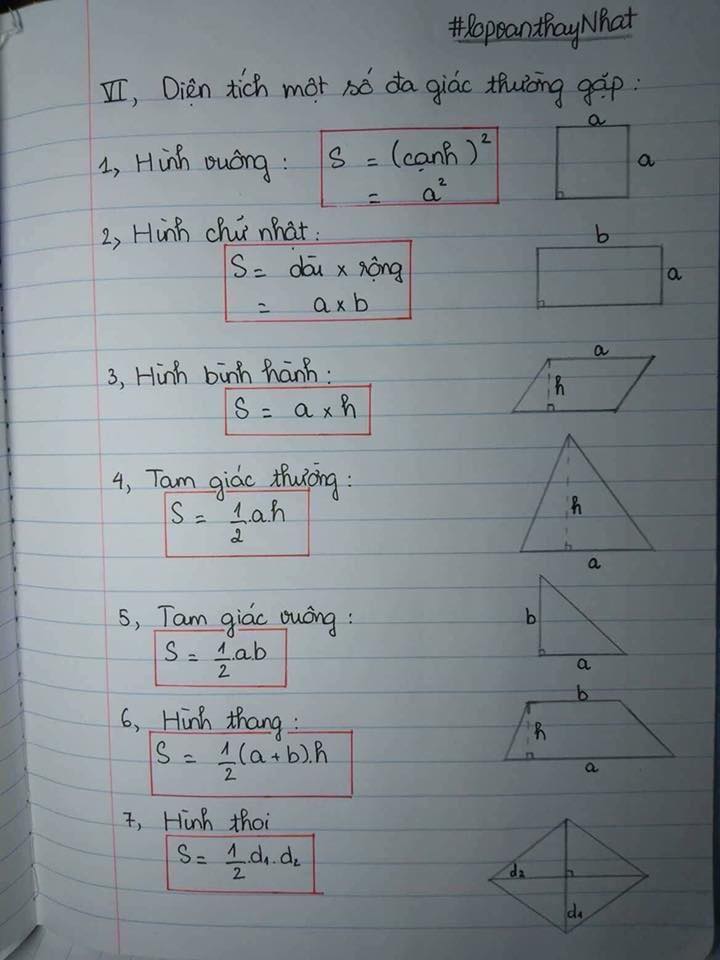 #lopoanthayNhat
VI, Diện tích một số đa giác thường gặp :
a
1, Hình vuông : S = (cạnh)²
a
= a²
2, Hình chữ nhật :
b
S = dài × rộng
a
= a × b
3, Hình bình hành :
a
h
S = a × h
4, Tam giác thường :
S = 1/2 .a.h
h
a
5, Tam giác vuông :
b
S = 1/2 .a.b
a
6, Hình thang :
b
h
S = 1/2 (a + b).h
a
7, Hình thoi
S = 1/2 .d₁.d₂
d₂
d₁